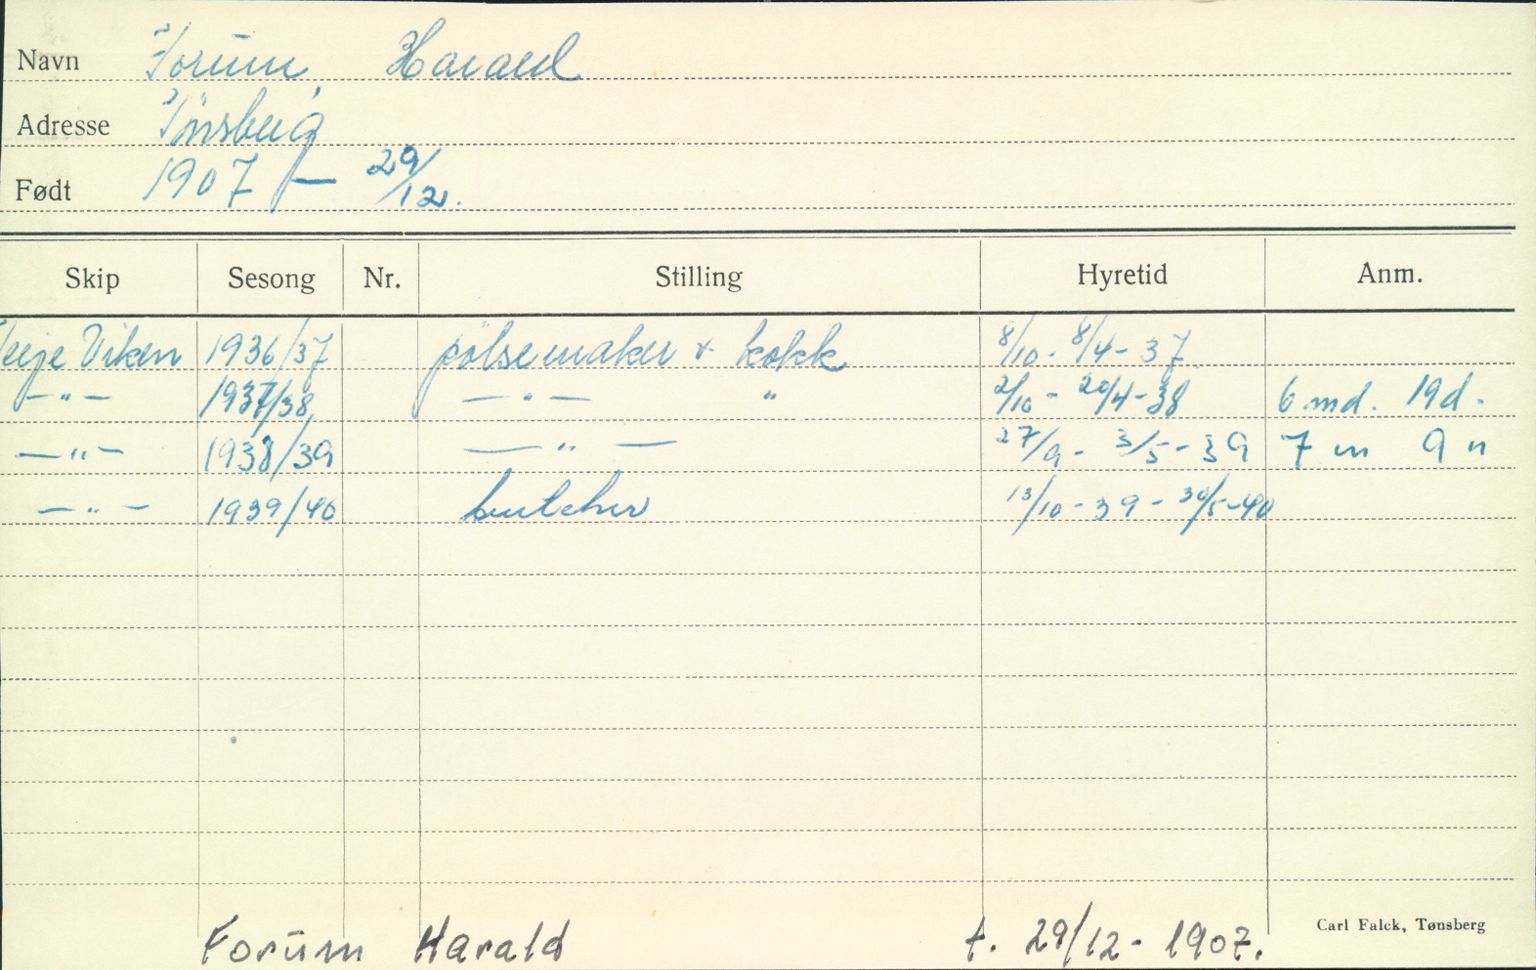 Navn Forum, Harald
Adresse Tönsberg
Født 1907 — 29/12.
Skip Sesong Nr. Stilling Hyretid Anm.
Terje Viken 1936/37 pölsemaker & kokk 8/10 - 8/4 - 37
— " — 1937/38 — " — " 2/10 - 20/4 - 38 6 md. 19 d.
— " — 1938/39 — " — 27/9 - 3/5 - 39 7 m 9 "
— " — 1939/40 butcher 13/10 - 39 - 30/5 - 40
Carl Falck, Tønsberg
Forum Harald f. 29/12 - 1907.